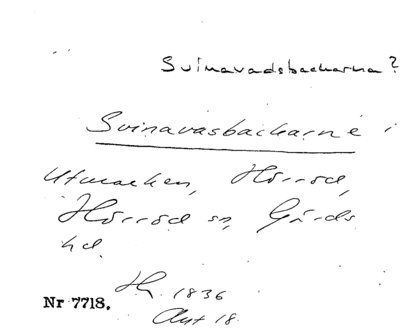 Svinavadsbackarna?
Svinavasbackarne i
Utmarken, Hörröd,
Hörröd sn, Gärds
hd.
H. 1836
Nr 7718.
Akt 18.